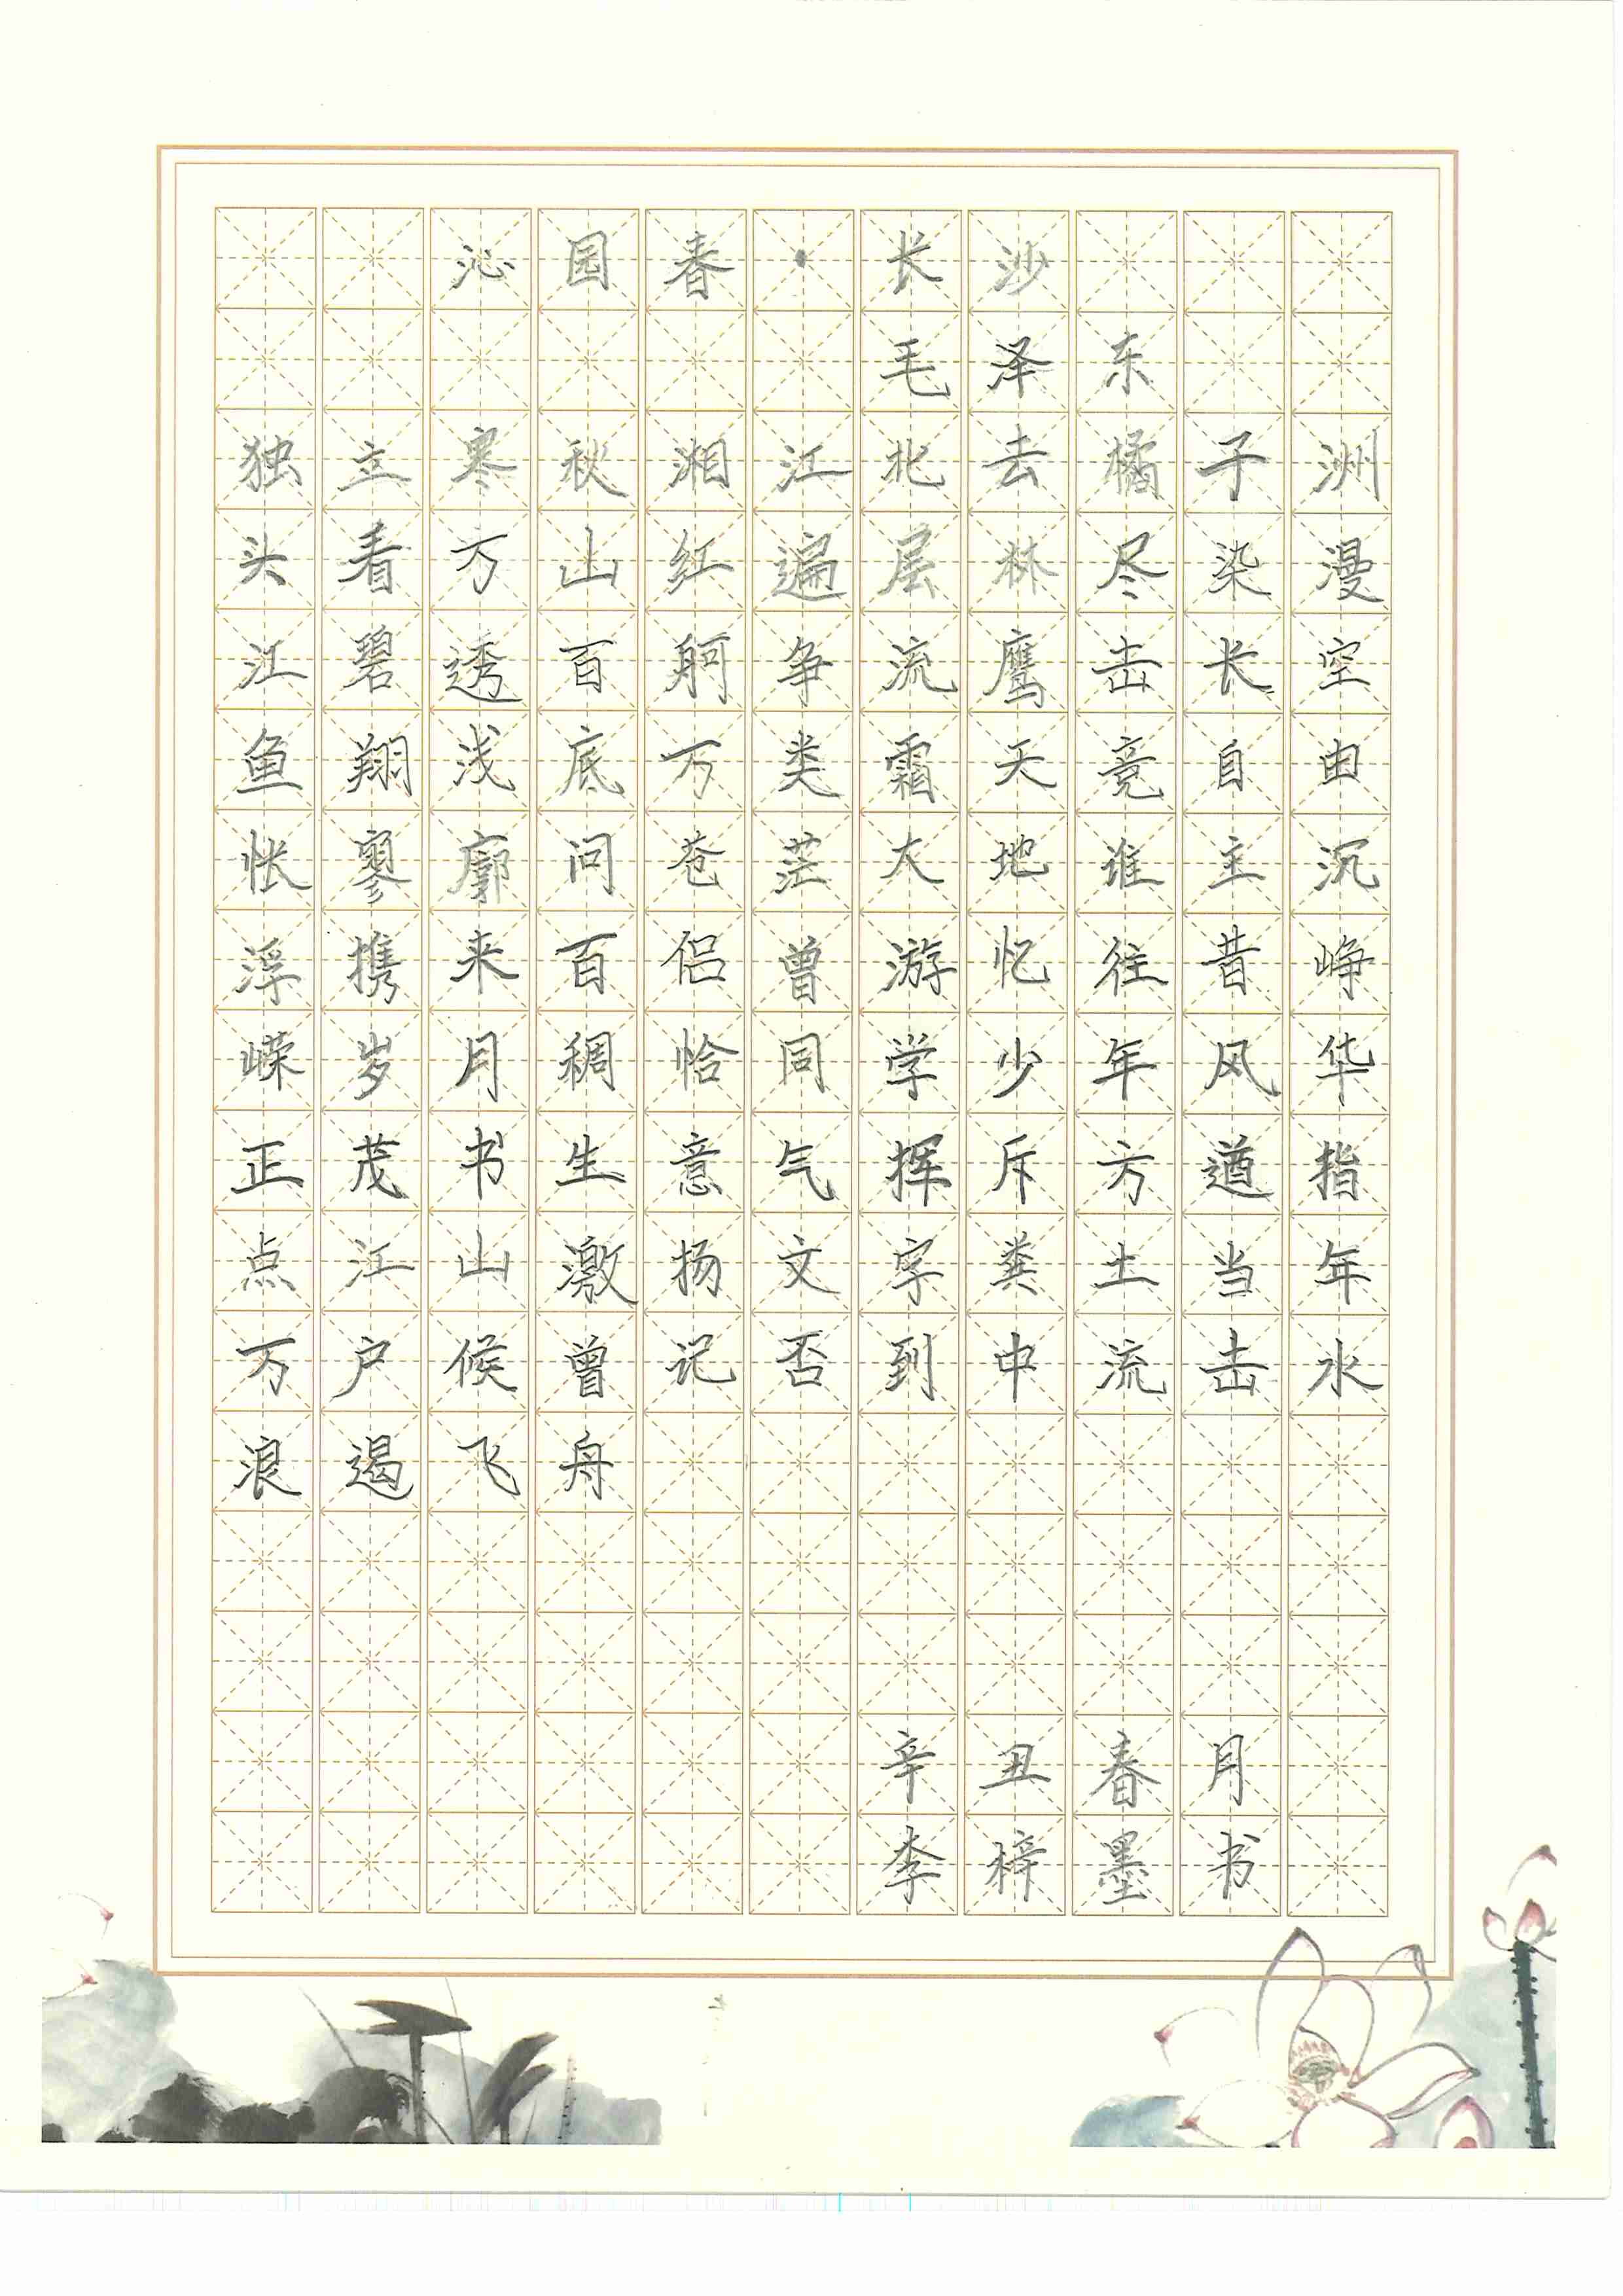 沁园春·长沙
毛泽东
独立寒秋湘江北去橘子洲
头看万山红遍层林尽染漫
江碧透百舸争流鹰击长空
鱼翔浅底万类霜天竞自由
怅寥廓问苍茫大地谁主沉
浮携来百侣曾游忆往昔峥
嵘岁月稠恰同学少年风华
正茂书生意气挥斥方遒指
点江山激扬文字粪土当年
万户候曾记否到中流击水
浪遏飞舟
辛丑春月
李梓墨书